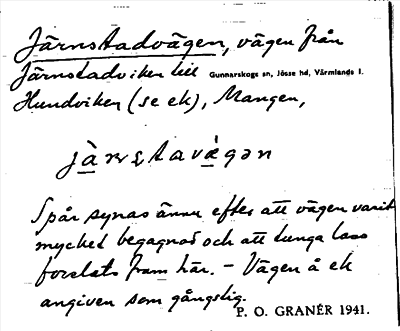 Järnstadvägen, vägen från
Järnstadviken till Gunnarskogs sn, Jösse hd, Värmlands l.
Hundviken (se ek), Mangen,
jà̱rnstavá̱gən
Spår synas ännu efter att vägen varit
mycket begagnad och att tunga lass
forslats fram här. – Vägen å ek
angiven som gångstig.
P. O. GRANÉR 1941.